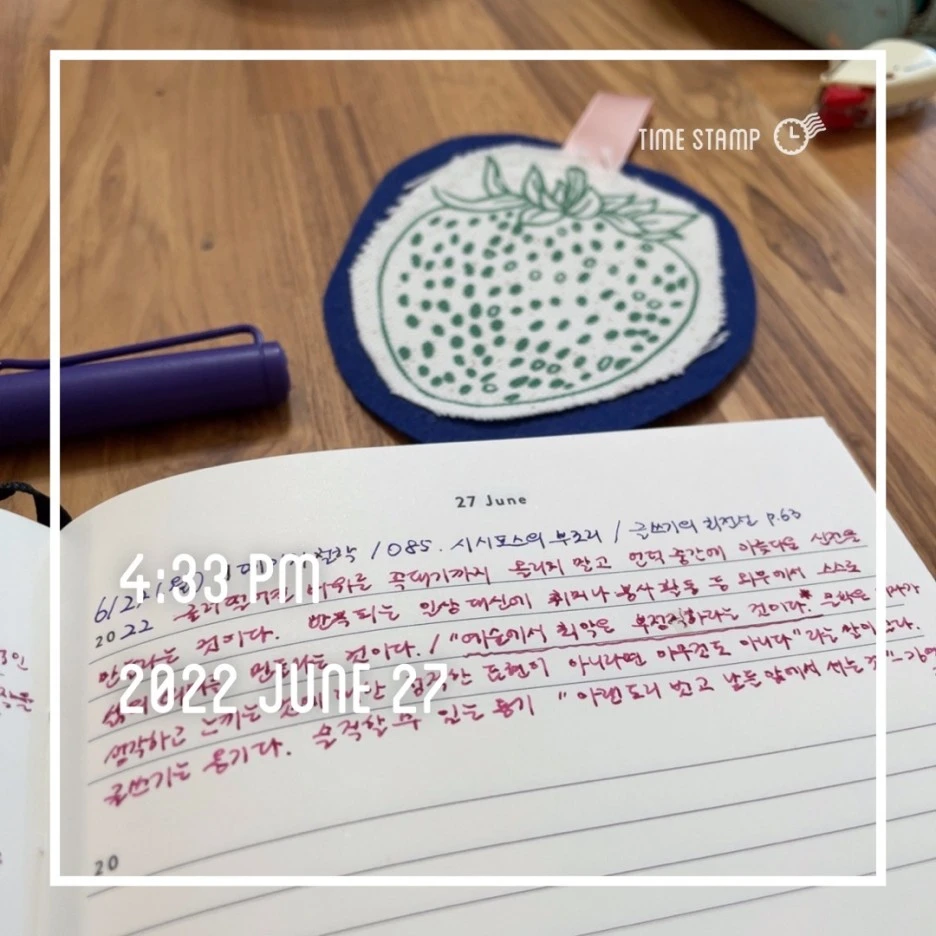 TIME STAMP
27 June
6/27 (월) / 철학 / 085. 시시포스의 부조리 / 글쓰기의 최전선 p.63
2022 굴러떨어진 바위를 꼭대기까지 올리지 않고 언덕 중간에 아름다운 신전을
만드라는 것이다. 반복되는 일상 대신에 취미나 봉사 활동 등 외부에서 스스로
만드는 것이다. / "예술에서 최악은 부정직하다는 것이다. 문학은 내가
생각하고 느끼는 표현이 아니라면 아무것도 아니다" 라는 말이 있다.
글쓰기는 용기다. 솔직할 수 있는 용기 "아랫도리 벗고 남들 앞에서 서는 것" -
4:33 PM
2022 JUNE 27
20